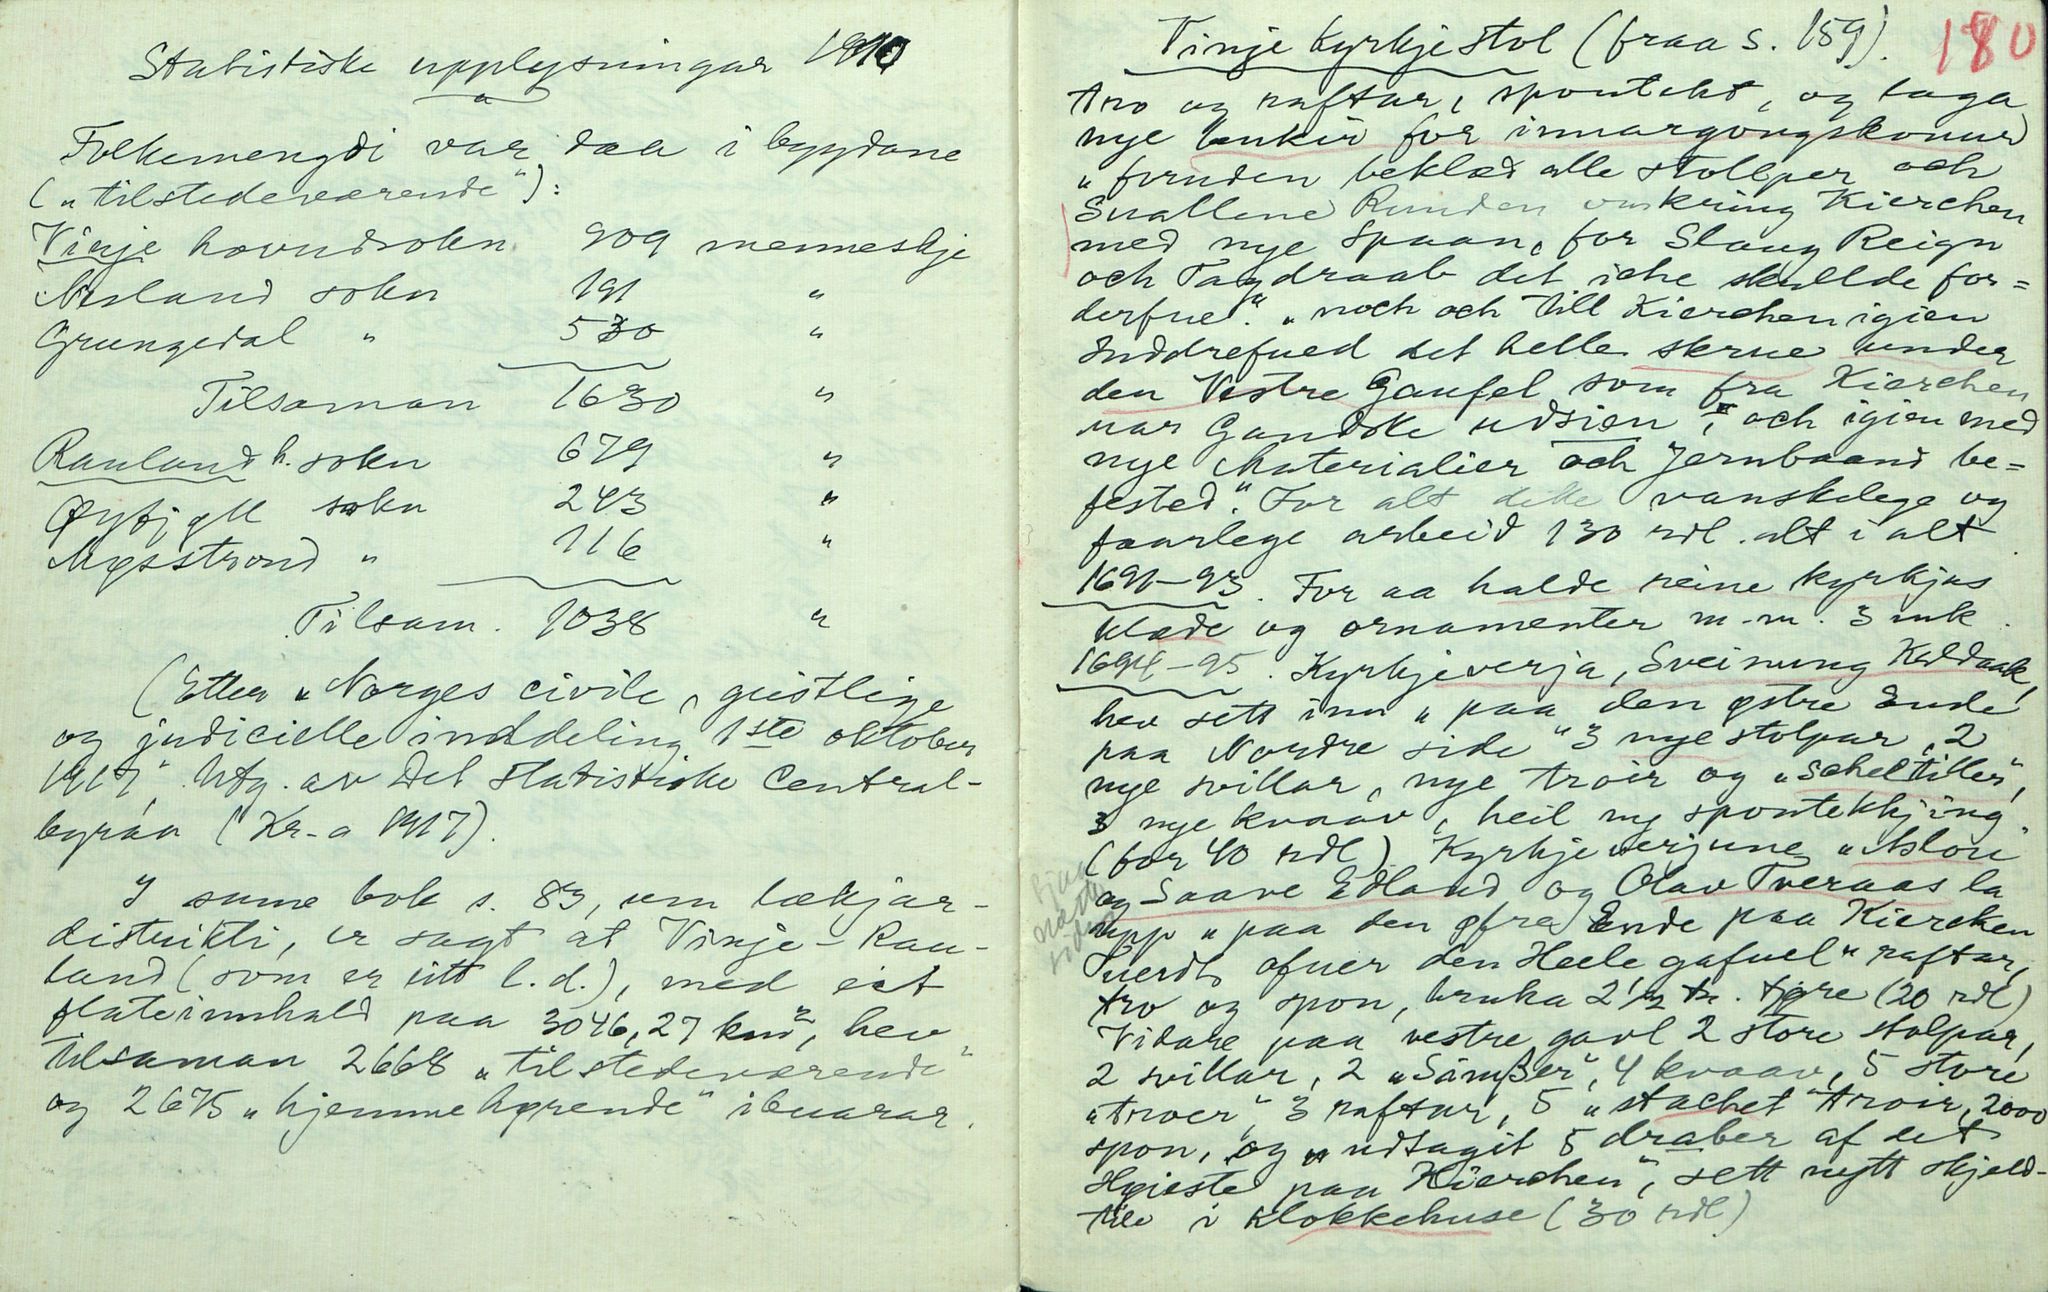 Statistiske upplysningar 1910
Folkemengdi var daa i bygdane
(„tilstedeværende"):
Vinje hovudsokn 909 menneskje
Nesland sokn 191 "
Grungedal " 530 "
Tilsaman 1630 "
Rauland h. sokn 679 "
Øyfjell sokn 243 "
Møsstrond " 116 "
Tilsam. 1038 "
(Etter „Norges civile, geistlige
og judicielle inddeling 1ste oktober
1917", Utg. av Det statistiske Central-
byraa (Kr-a 1917).
I same bok s. 83, um lækjar-
distrikti, er sagt at Vinje-Rau-
land (som er eitt l.d.), med eit
flateinnhald paa 3046,27 km², hev
tilsaman 2668 „tilstedeværende"
og 2675 „hjemmehørende" ibuarar.
180
Vinje kyrkjestol (fraa s. 159).
tro og raftar, spontekt, og laga
nye benkir for inngangskonur
„foruden beklæd alle stollper och
Suallene Runden omkring Kierchen
med nye Spaan, for Slaug Reign
och Tagdraab det iche skullde for=
derfue". „noch och till Kierchen igien
Inddrefued det helle skrue under
den Vestre Gaufel som fra Kierchen
uar Gandske udsien, och igien med
nye Materialier och Jernbaand be=
fested." For alt dette vanskelege og
faarlege arbeid 130 rdl. alt i alt.
1691–93. For aa halde reine kyrkjas
klæde og ornamenter m.m. 3 mk.
1694–95. Kyrkjeverja, Sveinung Kaldaak,
hev sett inn „paa den østre Ende
paa Nordre side" 3 nye stolpar, 2
nye svillar, nye troir og „scheltiller",
3 nye kvaav, heil ny spontekkjing
(for 40 rdl). Kyrkjeverjune „Aslou"
og Saave Edland og Olav Tveraas la
upp „paa den øfre Ende paa Kiercken
tuerdt ofuer den Heele gafuel" raftar,
tro og spon, bruka 2 1/2 tn. tjøre (20 rdl)
Vidare paa vestre gavl 2 store stolpar,
2 svillar, 2 „Sämßer", 4 kvaav, 5 store
„troer", 3 raftar, 5 „stachet" troir, 2000
spon, og „udtagit 5 draber af det
Høieste paa Kierchen", sett nytt skjeld-
tile i klokkehuse (30 rdl)